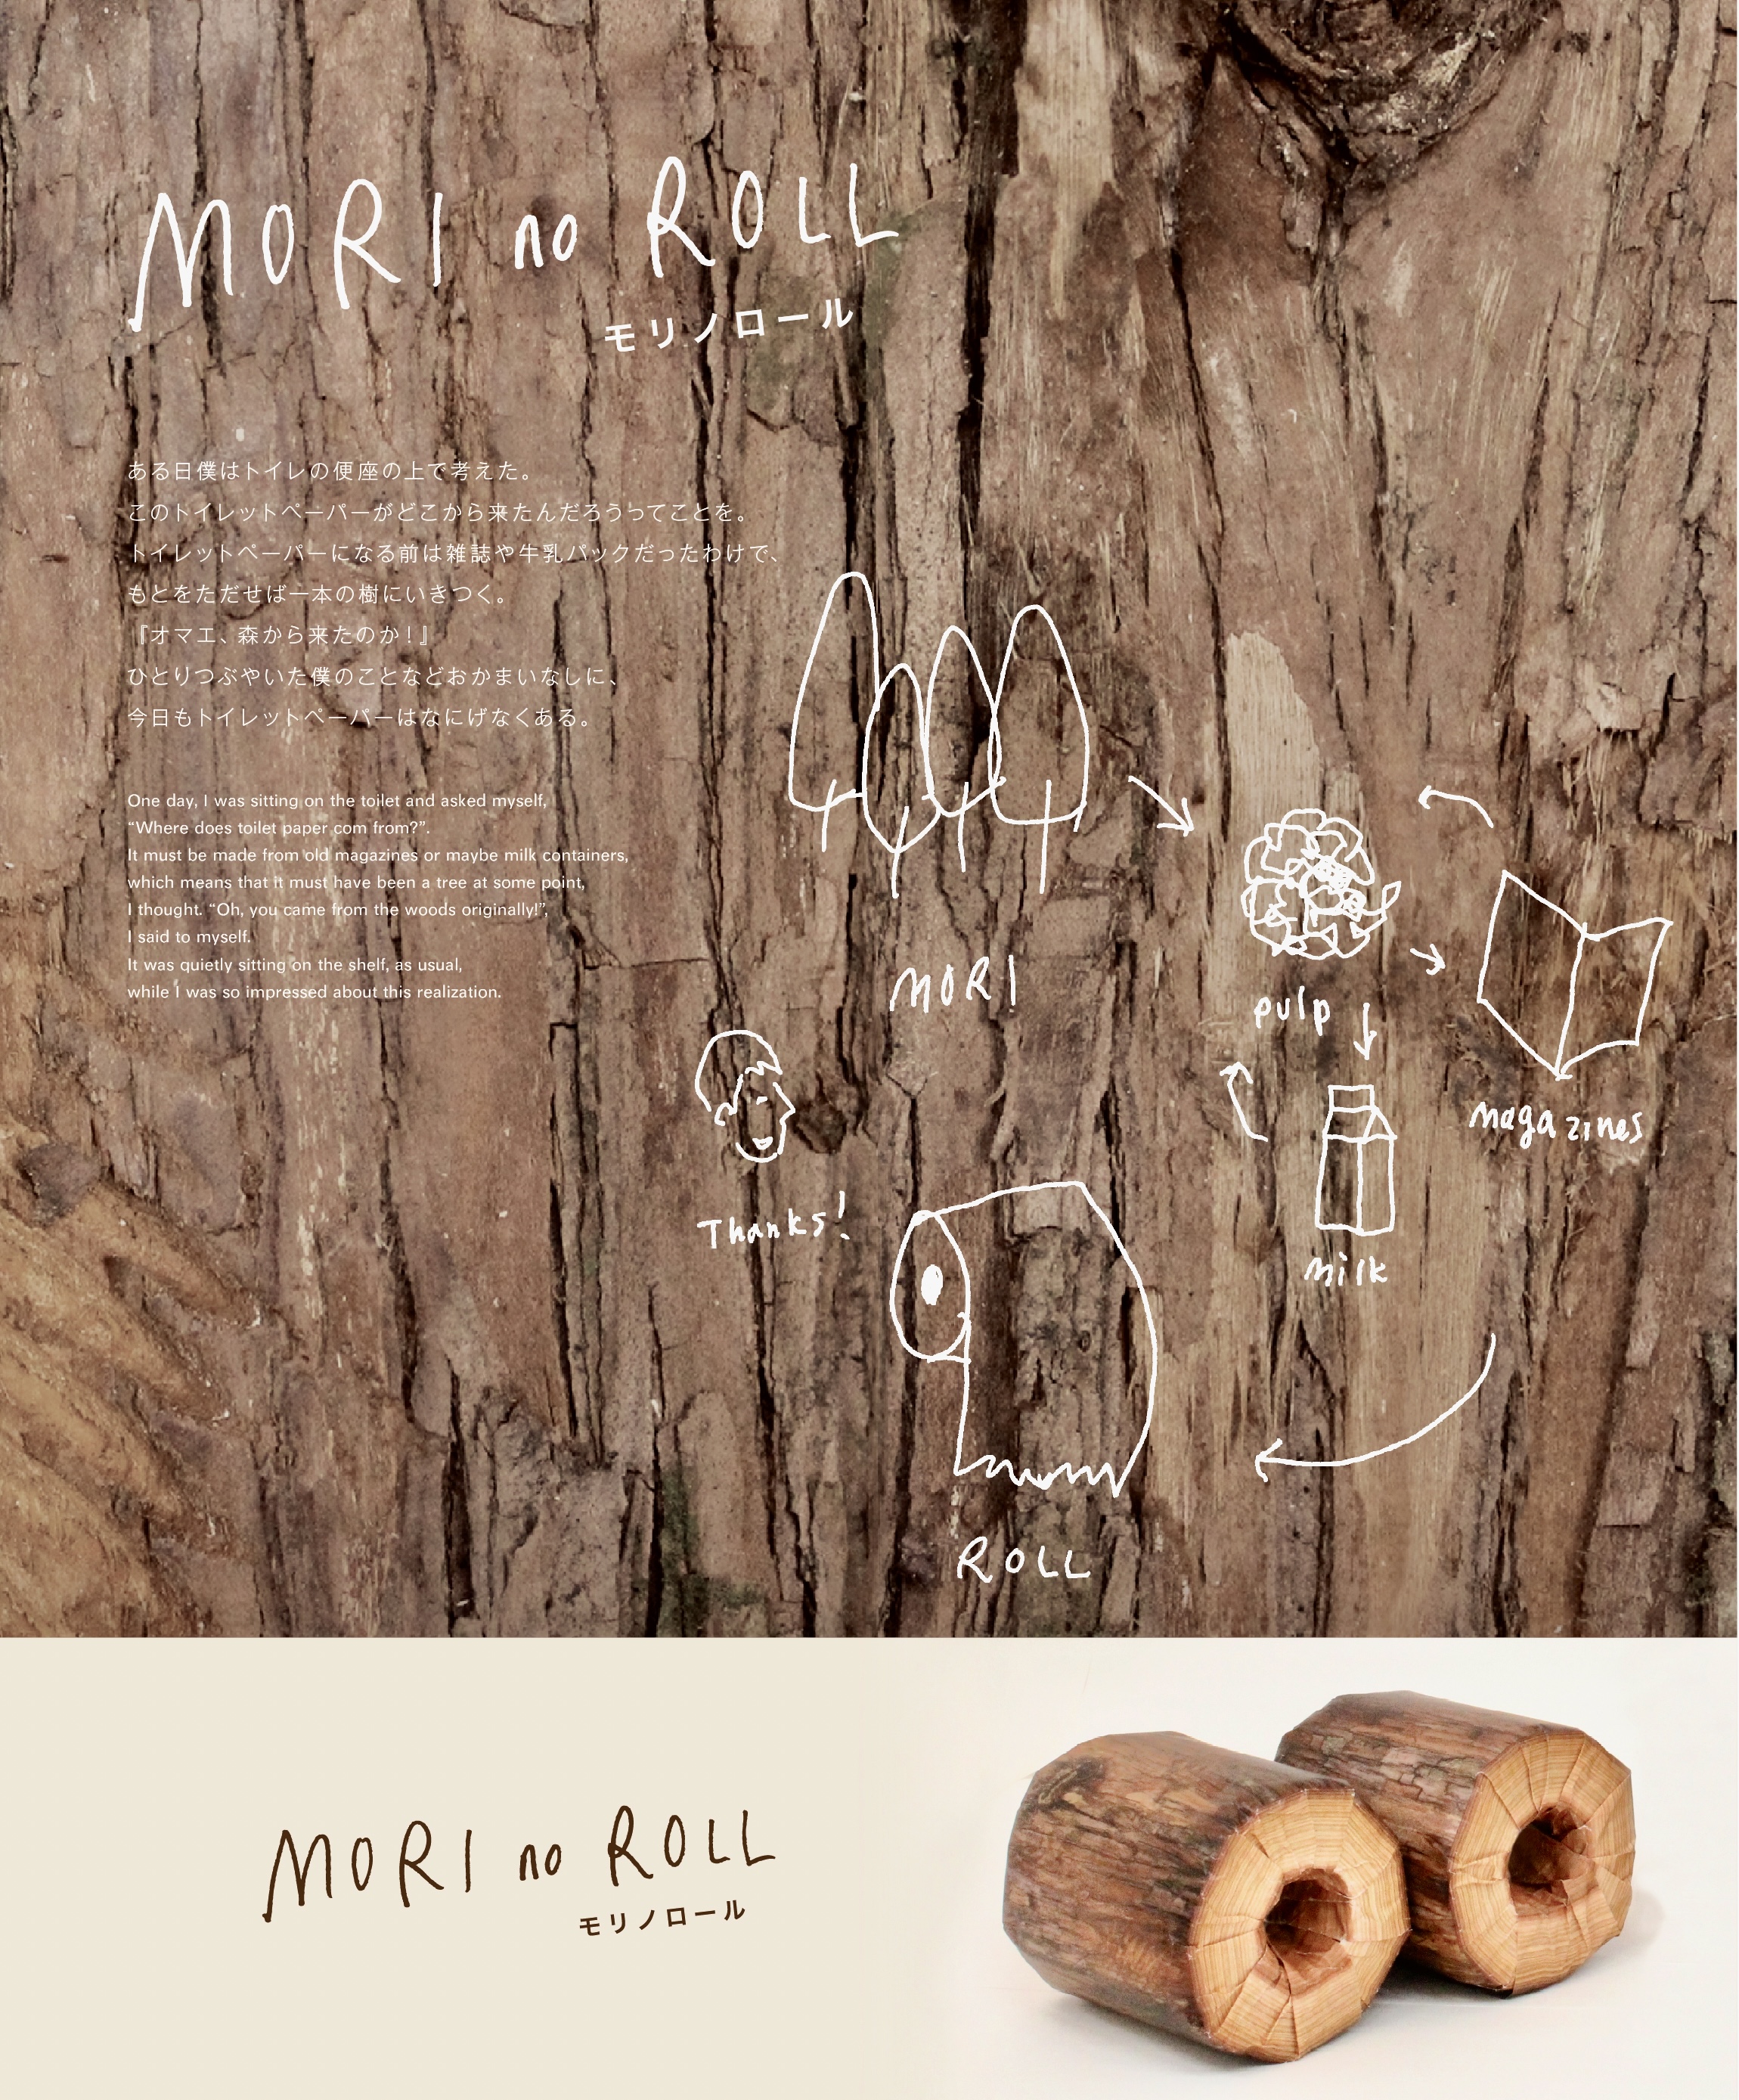 MORI no ROLL
モリノロール
ある日僕はトイレの便座の上で考えた。
このトイレットペーパーがどこから来たんだろうってことを。
トイレットペーパーになる前は雑誌や牛乳パックだったわけで、
もとをただせば一本の樹にいきつく。
『オマエ、森から来たのか！』
ひとりつぶやいた僕のことなどおかまいなしに、
今日もトイレットペーパーはなにげなくある。
One day, I was sitting on the toilet and asked myself,
“Where does toilet paper com from?”.
It must be made from old magazines or maybe milk containers,
which means that it must have been a tree at some point,
I thought. “Oh, you came from the woods originally!”,
I said to myself.
It was quietly sitting on the shelf, as usual,
while I was so impressed about this realization.
MORI
pulp
magazines
milk
Thanks!
ROLL
MORI no ROLL
モリノロール